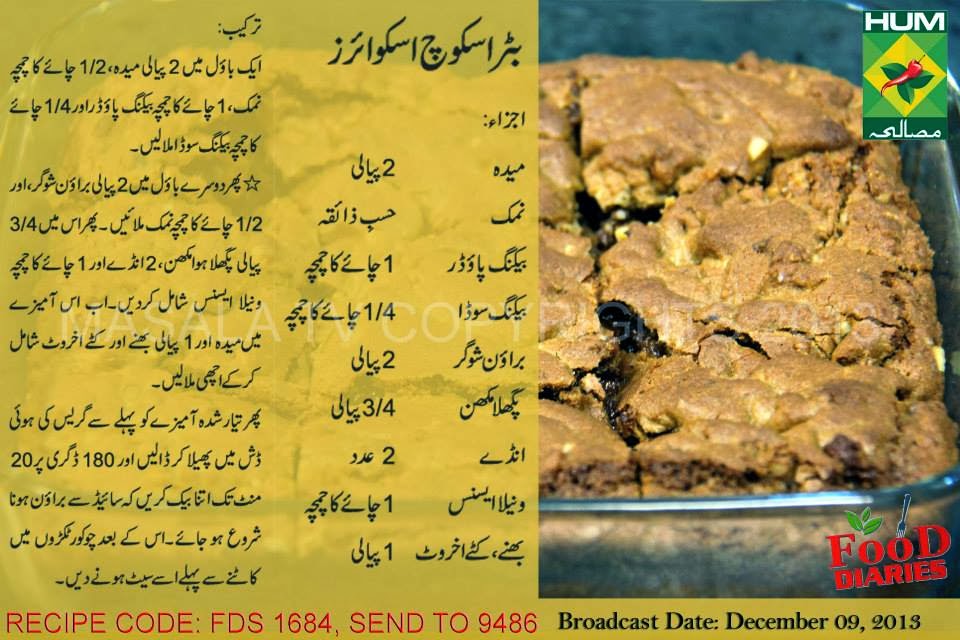 بٹر اسکوچ اسکوائرز
اجزاء:
میدہ 2 پیالی
نمک حسب ذائقہ
بیکنگ پاؤڈر 1 چائے کا چمچہ
بیکنگ سوڈا 1/4 چائے کا چمچہ
براؤن شوگر 2 پیالی
پگھلا مکھن 3/4 پیالی
انڈے 2 عدد
ونیلا ایسنس 1 چائے کا چمچہ
بھنے، کٹے اخروٹ 1 پیالی
ترکیب:
ایک باؤل میں 2 پیالی میدہ، 1/2 چائے کا چمچہ
نمک، 1 چائے کا چمچہ بیکنگ پاؤڈر اور 1/4 چائے
کا چمچہ بیکنگ سوڈا ملالیں۔
☆ پھر دوسرے باؤل میں 2 پیالی براؤن شوگر، اور
1/2 چائے کا چمچہ نمک ملائیں۔ پھر اس میں 3/4
پیالی پگھلا ہوا مکھن، 2 انڈے اور 1 چائے کا چمچہ
ونیلا ایسنس شامل کردیں۔ اب اس آمیزے
میں میدہ اور 1 پیالی بھنے اور کٹے اخروٹ شامل
کرکے اچھی ملالیں۔
پھر تیار شدہ آمیزے کو پہلے سے گریس کی ہوئی
ڈش میں پھیلا کر ڈالیں اور 180 ڈگری پر 20
منٹ تک اتنا بیک کریں کہ سائیڈ سے براؤن ہونا
شروع ہو جائے۔ اس کے بعد چوکور ٹکڑوں میں
کاٹنے سے پہلے اسے سیٹ ہونے دیں۔
HUM
مصالحہ
MASALA TV COPYRIGHT 2013
FOOD
DIARIES
RECIPE CODE: FDS 1684, SEND TO 9486
Broadcast Date: December 09, 2013